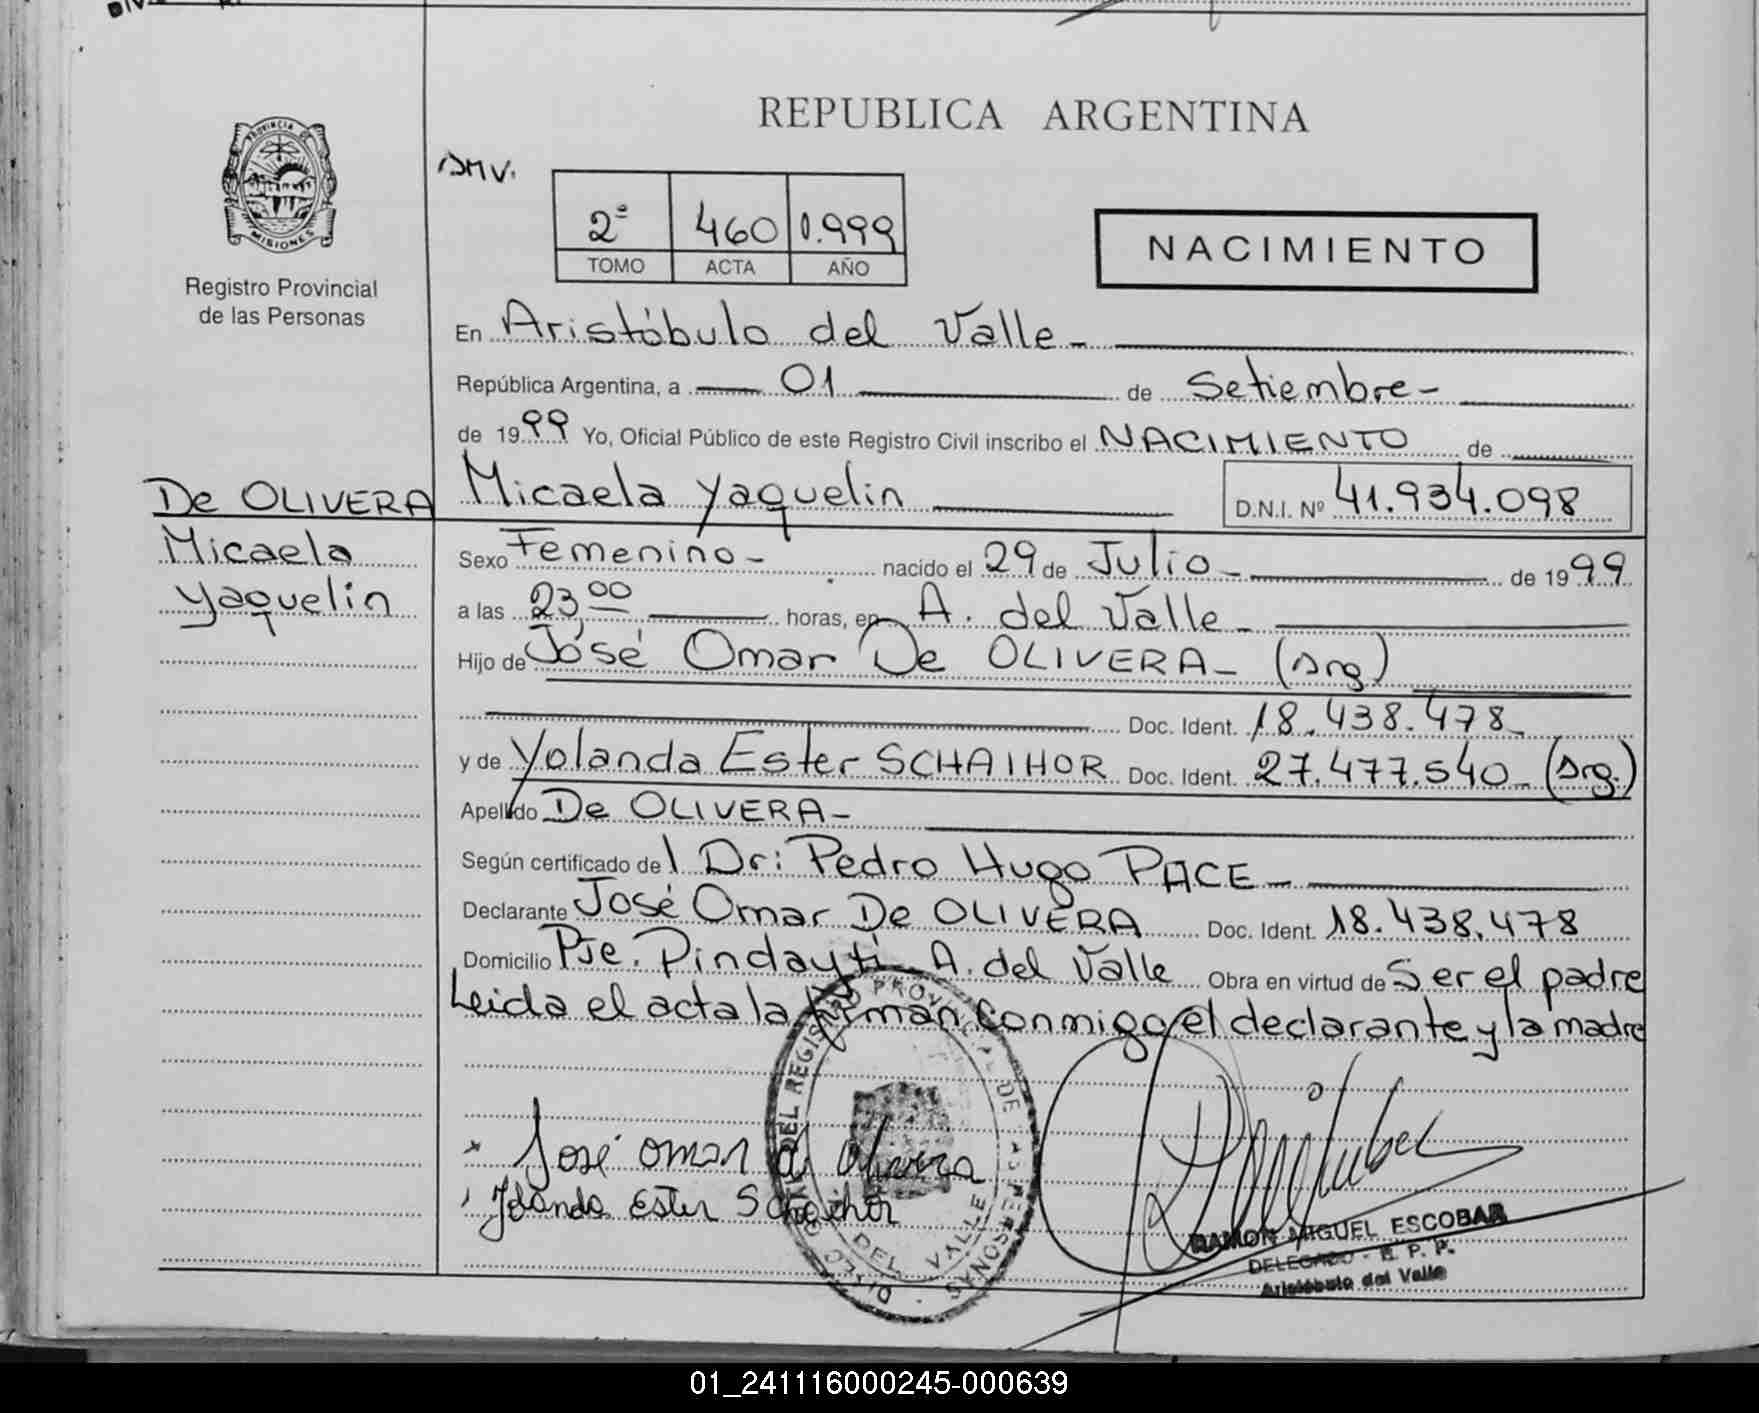 REPUBLICA ARGENTINA
PROVINCIA DE
MISIONES
Registro Provincial
de las Personas
2º 460 1.999
TOMO ACTA AÑO
NACIMIENTO
En Aristóbulo del Valle -
República Argentina, a 01 de Setiembre -
de 1999 Yo, Oficial Público de este Registro Civil inscribo el NACIMIENTO de
De OLIVERA
Micaela
Yaquelin
Micaela Yaquelin D.N.I. Nº 41.934.098
Sexo Femenino - nacido el 29 de Julio - de 1999
a las 23,00 horas, en A. del Valle -
Hijo de José Omar De OLIVERA - (Arg)
Doc. Ident. 18.438.478 -
y de Yolanda Ester SCHAIHOR Doc. Ident. 27.477.540 - (Arg.)
Apellido De OLIVERA -
Según certificado del Dr: Pedro Hugo PACE -
Declarante José Omar De OLIVERA Doc. Ident. 18.438.478
Domicilio Pje. Pindayti A. del Valle Obra en virtud de Ser el padre
Leida el acta la firman conmigo el declarante y la madre
José Omar de Olivera
Yolanda Ester Schaihor
DEL REGISTRO PROVINCIAL DE LAS PERSONAS
DEL VALLE
RAMON MIGUEL ESCOBAR
DELEGADO - R. P. P.
Aristóbulo del Valle
01_241116000245-000639